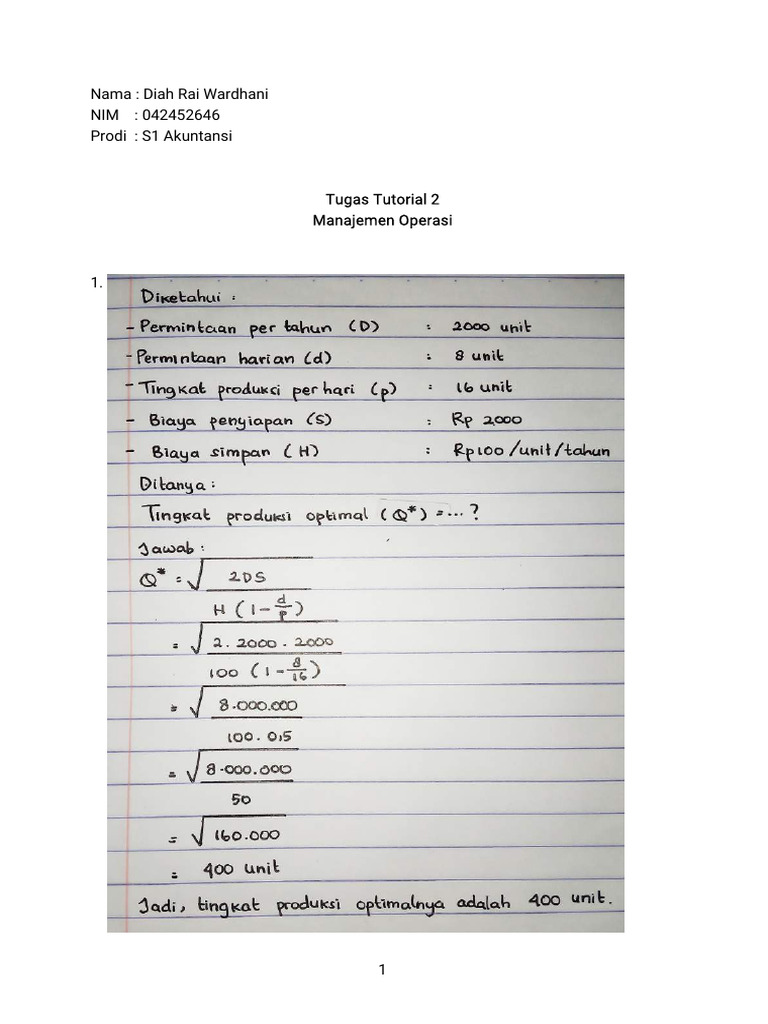 Nama : Diah Rai Wardhani
NIM : 042452646
Prodi : S1 Akuntansi
Tugas Tutorial 2
Manajemen Operasi
1.
Diketahui :
- Permintaan per tahun (D) : 2000 unit
- Permintaan harian (d) : 8 unit
- Tingkat produksi per hari (p) : 16 unit
- Biaya penyiapan (S) : Rp 2000
- Biaya simpan (H) : Rp100/unit/tahun
Ditanya :
Tingkat produksi optimal (Q*) = ... ?
Jawab :
Q* = √ 2DS
H (1 - d/p)
= √ 2. 2000 . 2000
100 (1 - 8/16)
= √ 8.000.000
100 . 0,5
= √ 8.000.000
50
= √ 160.000
= 400 unit
Jadi, tingkat produksi optimalnya adalah 400 unit.
1